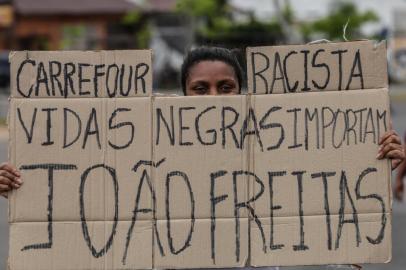 CARREFOUR RACISTA
VIDAS NEGRAS IMPORTAM
JOÃO FREITAS